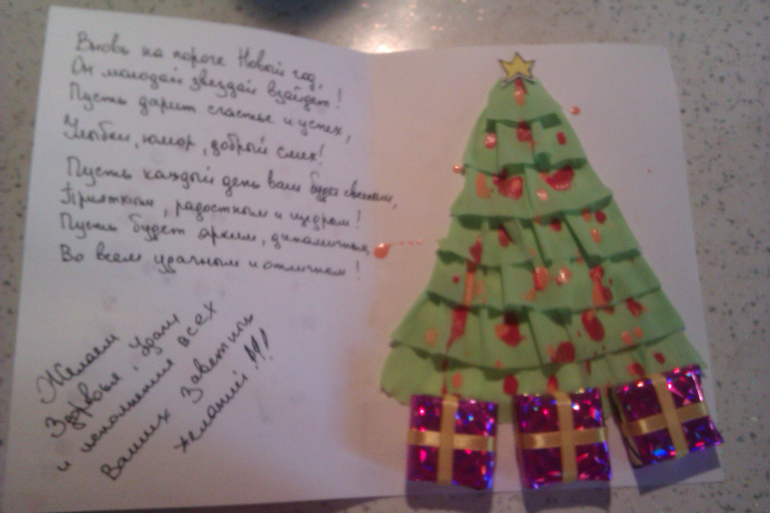 Вновь на пороге Новый год,
Он молодой звездой взойдёт!
Пусть дарит счастье и успех,
Улыбки, юмор, добрый смех!
Пусть каждый день вам будет светлым,
Приятным, радостным и щедрым!
Пусть будет ярким, динамичным,
Во всем удачным и отличным!
Желаем
Здоровья, Удачи
и исполнения всех
Ваших Заветных
желаний!!!